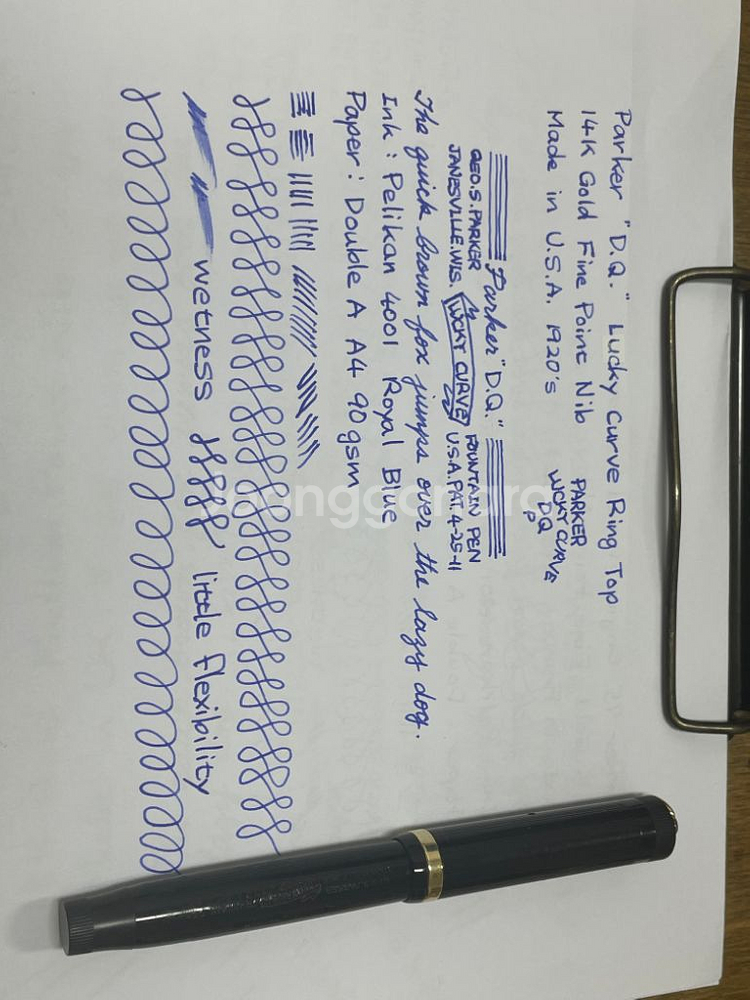 Parker "D.Q." Lucky Curve Ring Top
14K Gold Fine Point Nib
Made in U.S.A. 1920's
PARKER
LUCKY CURVE
DQ
P
Parker "D.Q."
GEO.S.PARKER FOUNTAIN PEN
JANESVILLE.WIS. LUCKY CURVE U.S.A.PAT.4-25-11
The quick brown fox jumps over the lazy dog.
Ink : Pelikan 4001 Royal Blue
Paper : Double A A4 90gsm
wetness
little flexibility
Joonggonara